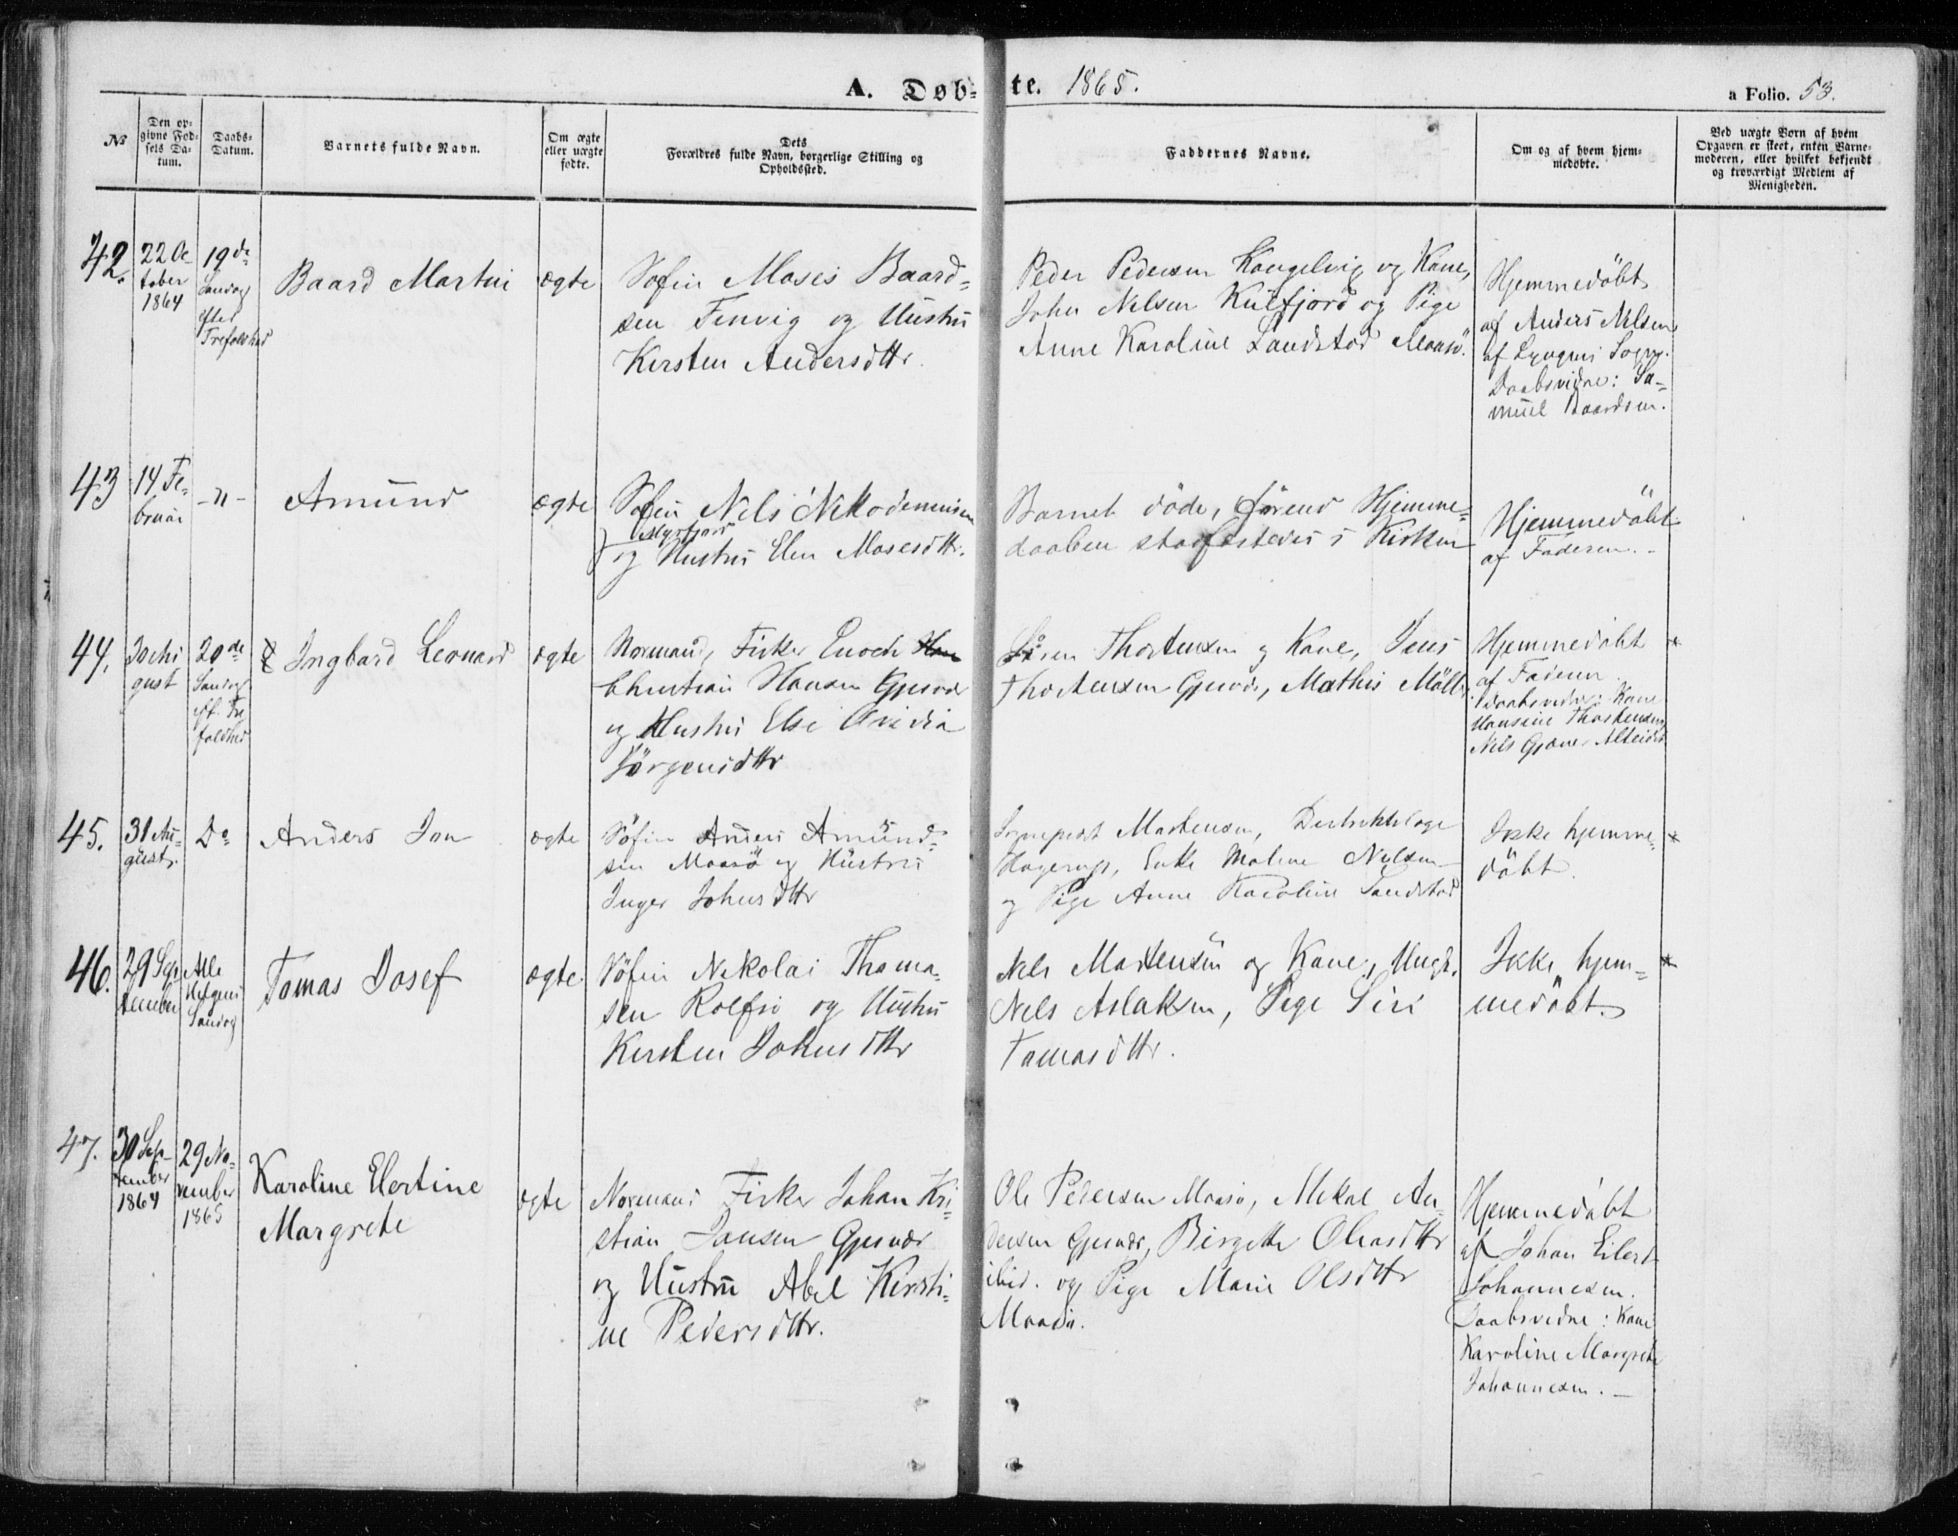 A. Døb-
te. 1865.
a Folio. 53.
No
Den op-
givne Fød-
sels Da-
tum.
Daabs-
Datum.
Barnets fulde Navn.
Om ægte
eller uægte
fødte.
Dets
Forældres fulde Navn, borgerlige Stilling og
Opholdssted.
Faddernes Navne.
Om og af hvem hjem-
medøbte.
Ved uægte Børn af hvem
Opgaven er skeet, enten Barne-
moderen, eller hvilket bekjendt
og troværdigt Medlem af
Menigheden.
42.
22 Oc-
tober
1864
19de
Søndag
efter
Trefoldhed
Baard Martin
ægte
Søfin Moses Baard-
sen Finvig og Hustru
Kirsten Andersdttr.
Peder Pedersen Kongelvig og Kone,
John Nilsen Kulfjord og Pige
Anne Karoline Sandstad Maasö.
Hjemmedöbt
af Anders Nilsen
af Lyngens Sogn.
Daabsvidne: Sa-
muel Baardsen.
43
14 Fe-
bruar
-"-
Amund
ægte
Søfin Nils Nikodemusen
Myrfjord
og Hustru Elen Mosesdttr.
Barnet döde, förend Hjemme-
daaben stadfæstedes i Kirken
Hjemmedöbt
af Faderen. -
44.
30 Au
gust
20de
Søndag
ef. Tre
foldhed
Ingbard Leonard
ægte
Normand, Fisker Enoch Han
Christian Hansen Gjesvær
og Hustru Else Ovidia
Jörgensdttr
Sören Thorstensen og Kone, Jens
Thorstensen Gjesvær, Mathis Möller
Hjemmedöbt
af Faderen.
Daabsvidne: Kone
Hansine Thorstensen
Nils Gjøner Alteidet
45.
31 Au-
gust.
Do
Anders Jon
ægte
Søfin Anders Amund-
sen Maasö og Hustru
Inger Johnsdttr
Sognepræst Mortensen, Distriktslæge
Hagerup, Enke Malene Nielsen
og Pige Anne Karoline Sandstad
Ikke hjemme-
döbt.
46.
29 Sep
tember
Alle
Helgens
Søndag
Tomas Josef
ægte
Söfin Nikolai Thoma-
sen Rolfsö og Hustru
Kirsten Johnsdttr
Nils Mortensen og Kone, Ungk.
Nils Aslaksen, Pige Siri
Tomasdttr.
Ikke hjem-
medöbt.
47.
30 Sep-
tember
1864
29 No-
vember
1865
Karoline Elertine
Margrete
ægte
Normand Fisker Johan Kri-
stian Jansen Gjesvær
og Hustru Abel Kirsti-
ne Pedersdttr.
Ole Pedersen Maasö, Mikal An-
dersen Gjesvær, Birgitte Olsdttr
ibid. og Pige Marie Olsdttr
Maasö.
Hjemmedöbt
af Johan Eilert
Johannesen.
Daabsvidne: Kone
Karoline Margrete
Johannesen. -